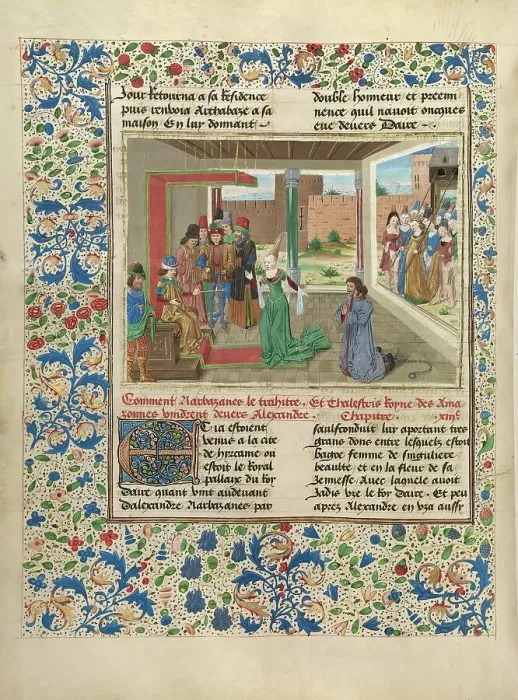 Jour Retourna a sa Residence
puis renvoia Arthabaze a sa
maison En luy donnant
double honneur et preemi
nence quil navoit oncques
eue devers Daire
Comment Narbazanes le trahitre. Et Thalestris Royne des Ama
zonnes vindrent devers Alexandre. Chapitre. xiiie.
Eia estoient
venus a la cite
de hyrcame ou
estoit le Royal
pallaix du Roy
Daire quant vint audevant
dalexandre Narbazanes par
saulfconduit luy aportant tres
grans dons entre lesquelz estoit
bagoe femme de singuliere
beaulte et en la fleur de sa
Jennesse Avec laquele avoit
Jadis use le Roy Daire. Et peu
apres Alexandre en usa aussy